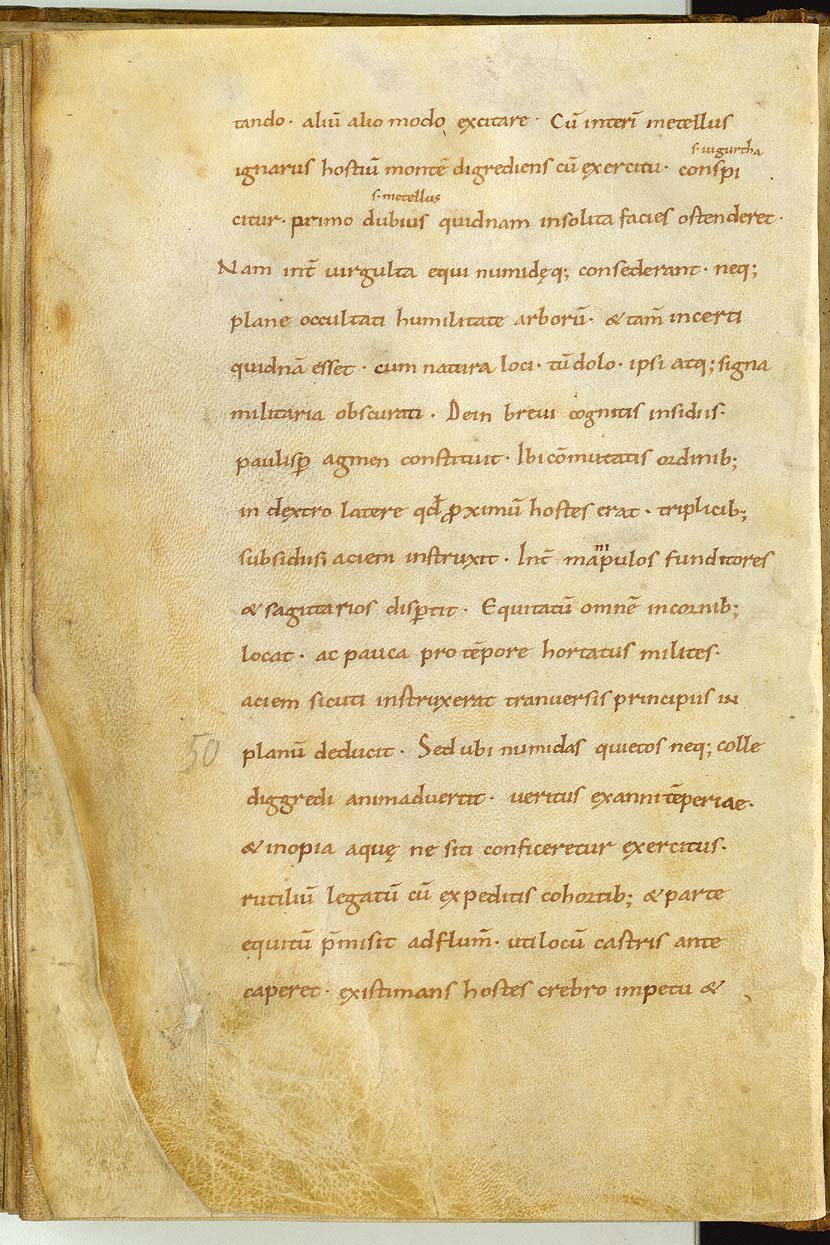 tando · aliū alio modo excitare · Cū interī metellus
s· iugurtha
ignarus hostiū montē digrediens cū exercitu · conspi
s· metellus
citur · primo dubius quidnam insolita facies ostenderet ·
Nam int̄ uirgulta equi numidęq; consederant · neq;
plane occultati humilitate arborū · & tam̄ incerti
quidnā esset · cum natura loci · tū dolo · ipsi atq; signa
militaria obscurati · Dein breui cognitis insidiis ·
paulisꝑ agmen constituit · Ibi cōmutatis ordinib;
in dextro latere qđ ꝓximū hostes erat · triplicib;
subsidiis aciem instruxit · Int̄ manipulos funditores
& sagittarios disꝑtit · Equitatū omnē in cornib;
locat · ac pauca pro tēpore hortatus milites ·
aciem sicuti instruxerat tranuersis principiis in
50 planū deducit · Sed ubi numidas quietos neq; colle
diggredi animaduertit · ueritus ex anni tēperiae ·
& inopia aquę ne siti conficeretur exercitus ·
rutiliū legatū cū expeditis cohortib; & parte
equitū p̄misit ad flum̄ · uti locū castris ante
caperet · existimans hostes crebro impetu &